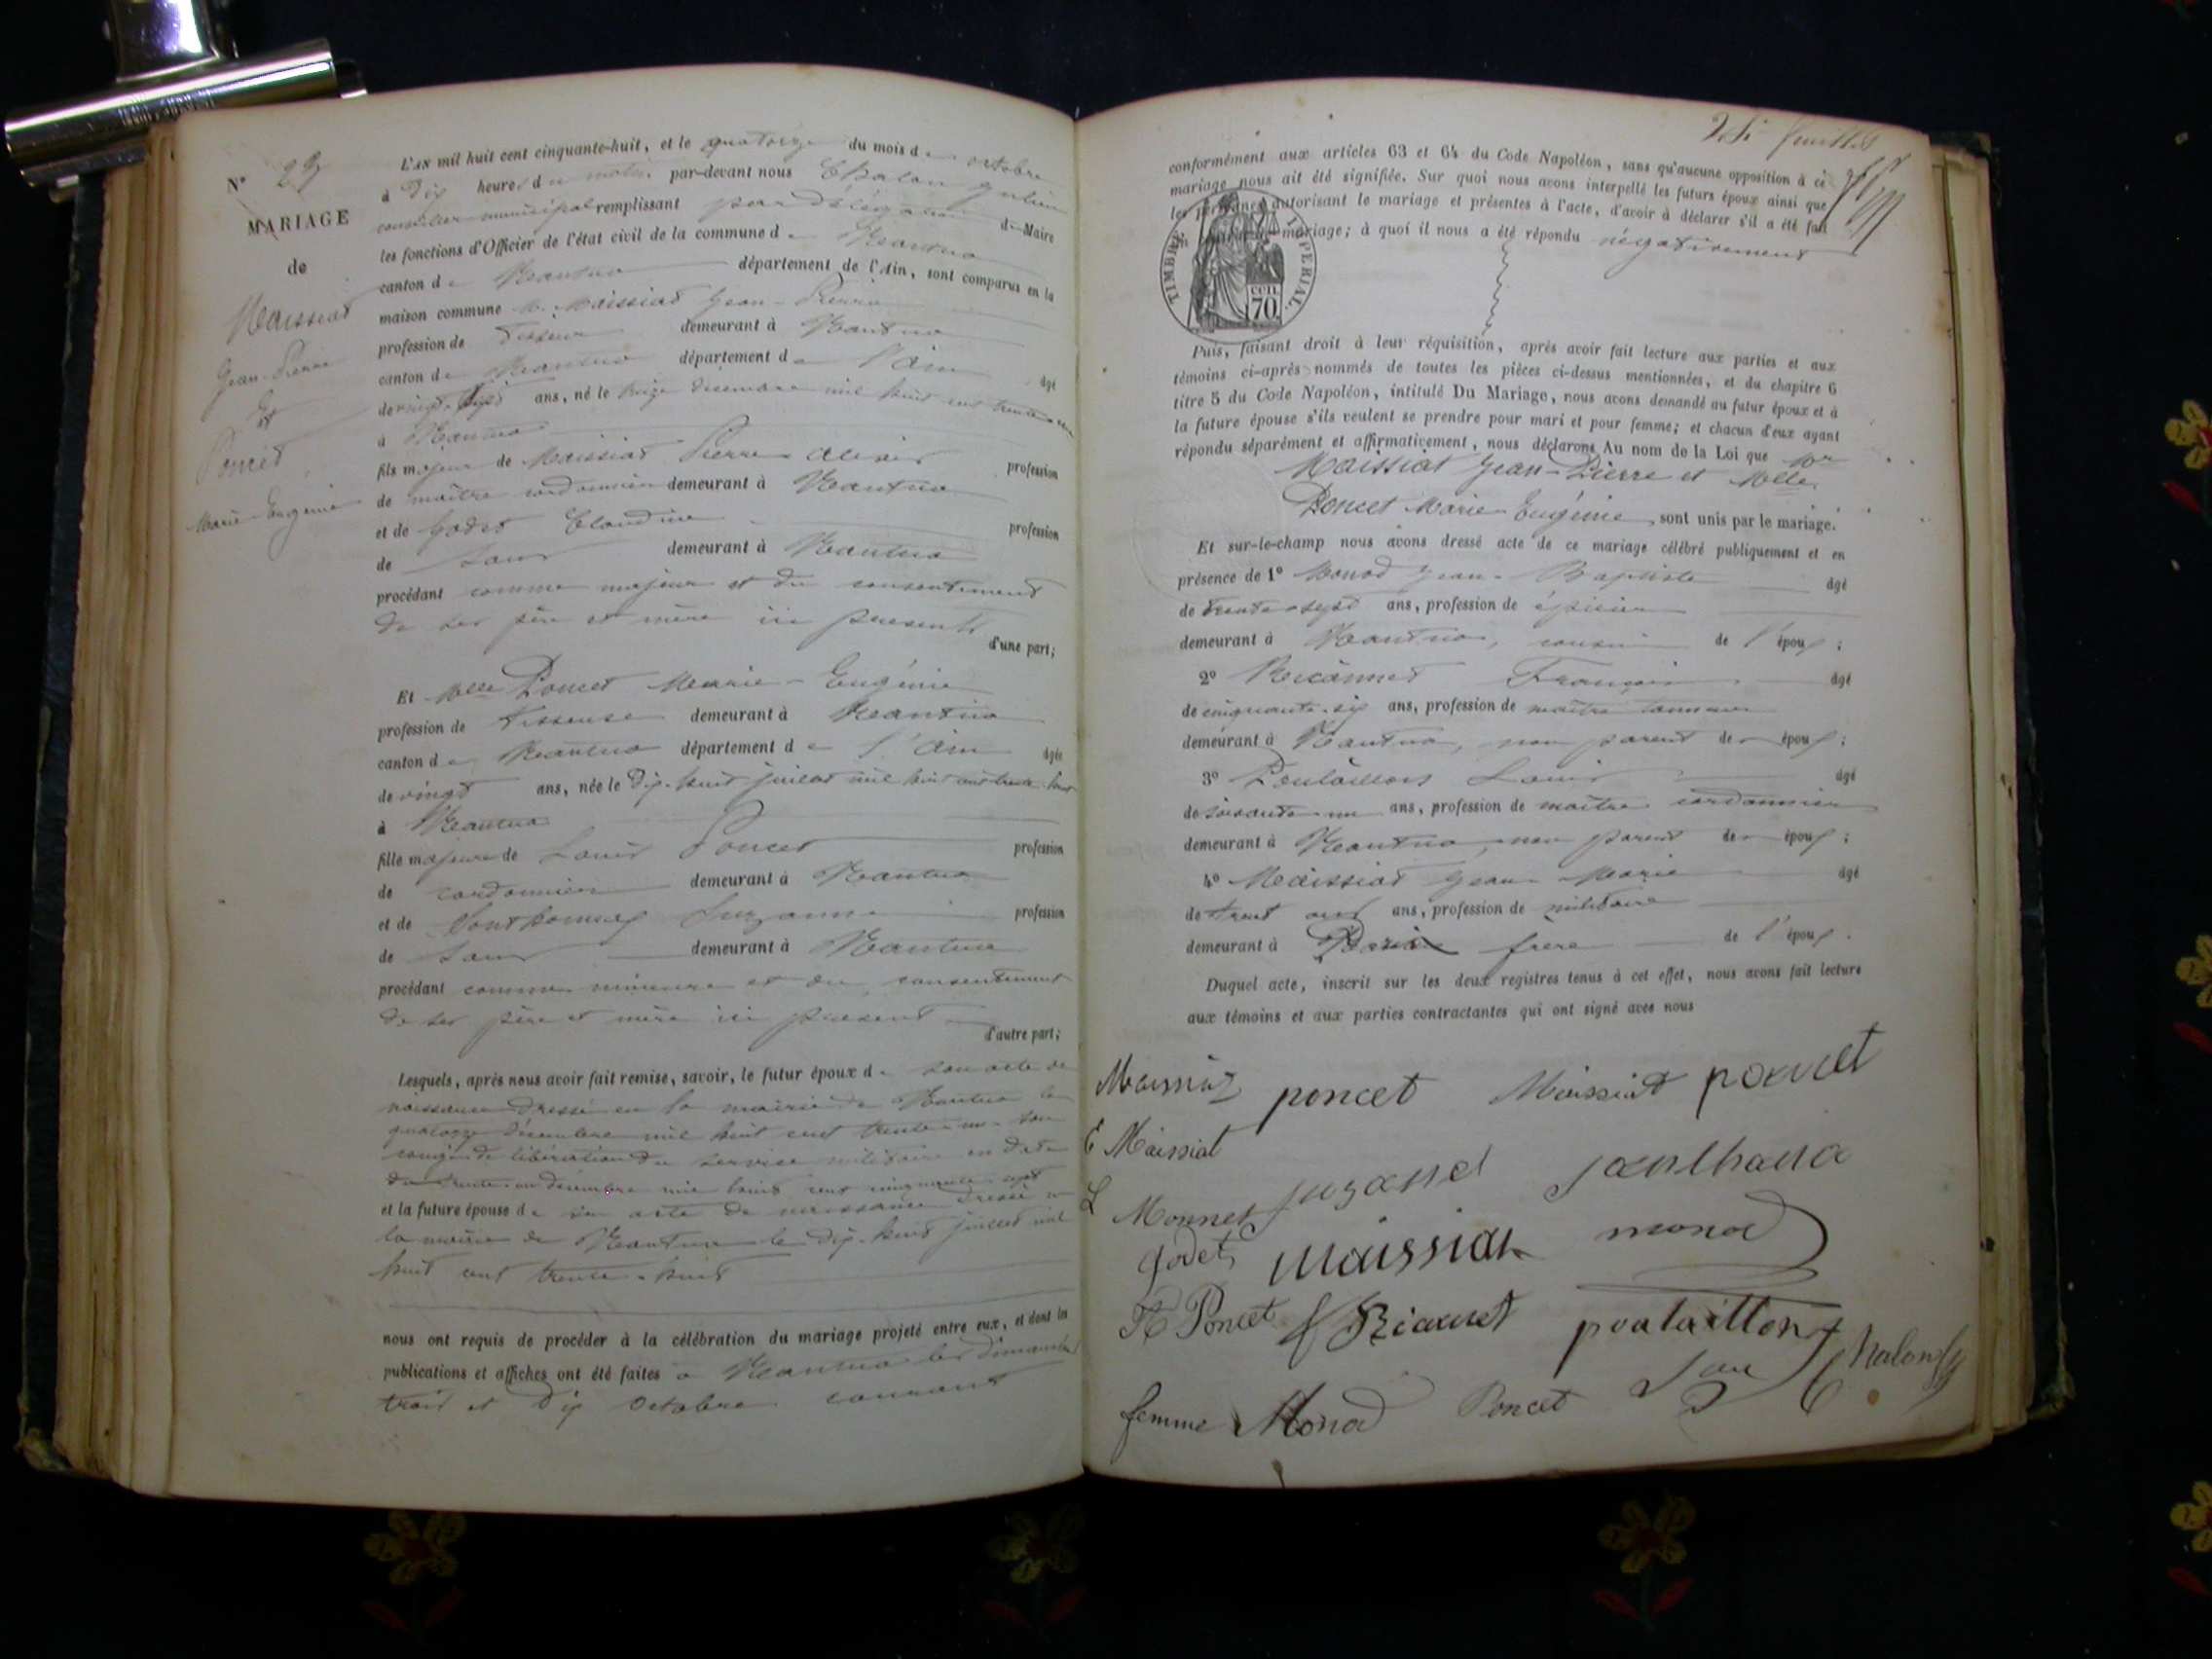 N°
MARIAGE
de
Maissiat
Jean-Pierre
Et
Poncet
Marie-Eugénie
L'AN mil huit cent cinquante-huit, et le quatorze du mois d'octobre
à dix heures du matin par-devant nous Chalon Julien
conseiller municipal remplissant par délégation du Maire
les fonctions d'Officier de l'état civil de la commune de Nantua
canton de Nantua département de l'Ain, sont comparus en la
maison commune M. Maissiat Jean-Pierre
profession de Tisseur demeurant à Nantua
canton de Nantua département de l'Ain âgé
de vingt-six ans, né le treize décembre mil huit cent trente-un
à Nantua
fils majeur de Maissiat Pierre profession
de maître cordonnier demeurant à Nantua
et de Godet Claudine profession
de demeurant à Nantua
procédant comme majeur et du consentement
de ses père et mère ici présents
d'une part;
Et Melle Poncet Marie-Eugénie
profession de Tisseuse demeurant à Nantua
canton de Nantua département de l'Ain âgée
de vingt ans, née le dix-huit juillet mil huit cent trente-huit
à Nantua
fille majeure de Louis Poncet profession
de cordonnier demeurant à Nantua
et de Suzanne profession
de demeurant à Nantua
procédant comme mineure et du consentement
de ses père et mère ici présents
d'autre part;
Lesquels, après nous avoir fait remise, savoir, le futur époux de son acte de
naissance dressé en la mairie de Nantua le
quatorze décembre mil huit cent trente-un son
congé de libération du service militaire en date
du trente-un décembre mil huit cent cinquante-sept
et la future épouse de son acte de naissance dressé à
la mairie de Nantua le dix-huit juillet mil
huit cent trente-huit
nous ont requis de procéder à la célébration du mariage projeté entre eux, et dont les
publications et affiches ont été faites à Nantua les dimanches
trois et dix octobre courant
feuillet
conformément aux articles 63 et 64 du Code Napoléon, sans qu'aucune opposition à ce
mariage nous ait été signifiée. Sur quoi nous avons interpellé les futurs époux ainsi que
les personnes autorisant le mariage et présentes à l'acte, d'avoir à déclarer s'il a été fait
mariage; à quoi il nous a été répondu négativement
TIMBRE IMPERIAL
CEN
70
Puis, faisant droit à leur réquisition, après avoir fait lecture aux parties et aux
témoins ci-après nommés de toutes les pièces ci-dessus mentionnées, et du chapitre 6
titre 5 du Code Napoléon, intitulé Du Mariage, nous avons demandé au futur époux et à
la future épouse s'ils veulent se prendre pour mari et pour femme; et chacun d'eux ayant
répondu séparément et affirmativement, nous déclarons Au nom de la Loi que Mr
Maissiat Jean-Pierre et Melle
Poncet Marie-Eugénie, sont unis par le mariage.
Et sur-le-champ nous avons dressé acte de ce mariage célébré publiquement et en
présence de 1° Monod Jean-Baptiste âgé
de trente-sept ans, profession de épicier
demeurant à Nantua, cousin de l'époux;
2° François âgé
de cinquante-six ans, profession de maître tanneur
demeurant à Nantua, non parent des époux;
3° Poulaillon Louis âgé
de soixante-un ans, profession de maître cordonnier
demeurant à Nantua, non parent des époux;
4° Maissiat Jean-Marie âgé
de ans, profession de militaire
demeurant à frère de l'époux.
Duquel acte, inscrit sur les deux registres tenus à cet effet, nous avons fait lecture
aux témoins et aux parties contractantes qui ont signé avec nous
Maissiat poncet Maissiat poncet
E Maissiat
L Monnet
godet maissiat monod
Poncet
femme Monod Poncet Chalon